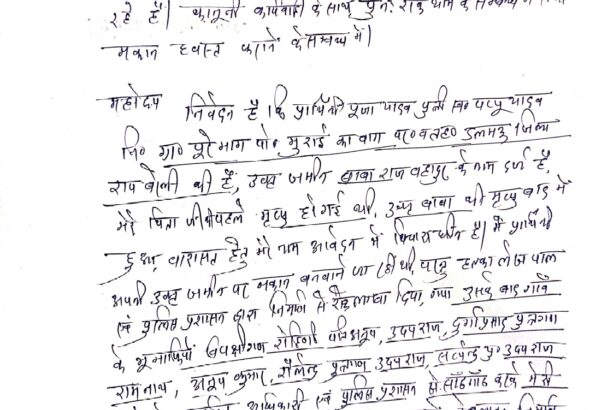 रहे है। कानूनी कार्यवाही के साथ पुनः
मकान ध्वस्त कराने के सम्बन्ध में।
महोदय निवेदन है कि प्रार्थिनी पूजा यादव पुत्री स्व० पप्पू यादव
नि० ग्रा० पूरे भाग पो० मुराई का बाग प० व तह० डलमऊ जिला
राय बरेली की है, उक्त जमीन बाबा राज बहादुर के नाम दर्ज है,
मेरे पिता जी पहले मृत्यु हो गई थी, उक्त बाबा की मृत्यु बाद में
हुई, वारासत हेतु मेरे नाम आवेदन में विचाराधीन है। मैं प्रार्थिनी
अपनी उक्त जमीन पर मकान बनवाने जा रही थी, परन्तु हलका लेखपाल
एवं पुलिस प्रशासन द्वारा निर्माण से दिया गया उसके बाद गाँव
के भूमाफिया विपक्षीगण रोहिणी पति अनूप, उदयराज, दुर्गाप्रसाद पुत्रगण
रामनाथ, अनूप कुमार, शैलेन्द्र पुत्रगण उदयराज, सर्वेन्द्र पु० उदयराज
एवं पुलिस प्रशासन से साँठगाँठ करके मेरी